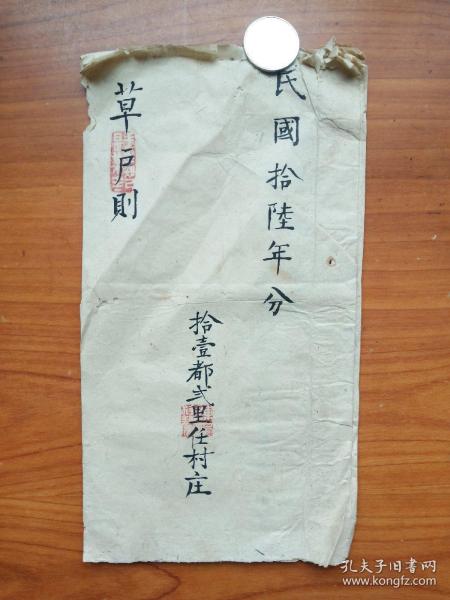 民國拾陸年分
拾壹都弍里任村庄
草戶則
孔夫子旧书网
www.kongfz.com